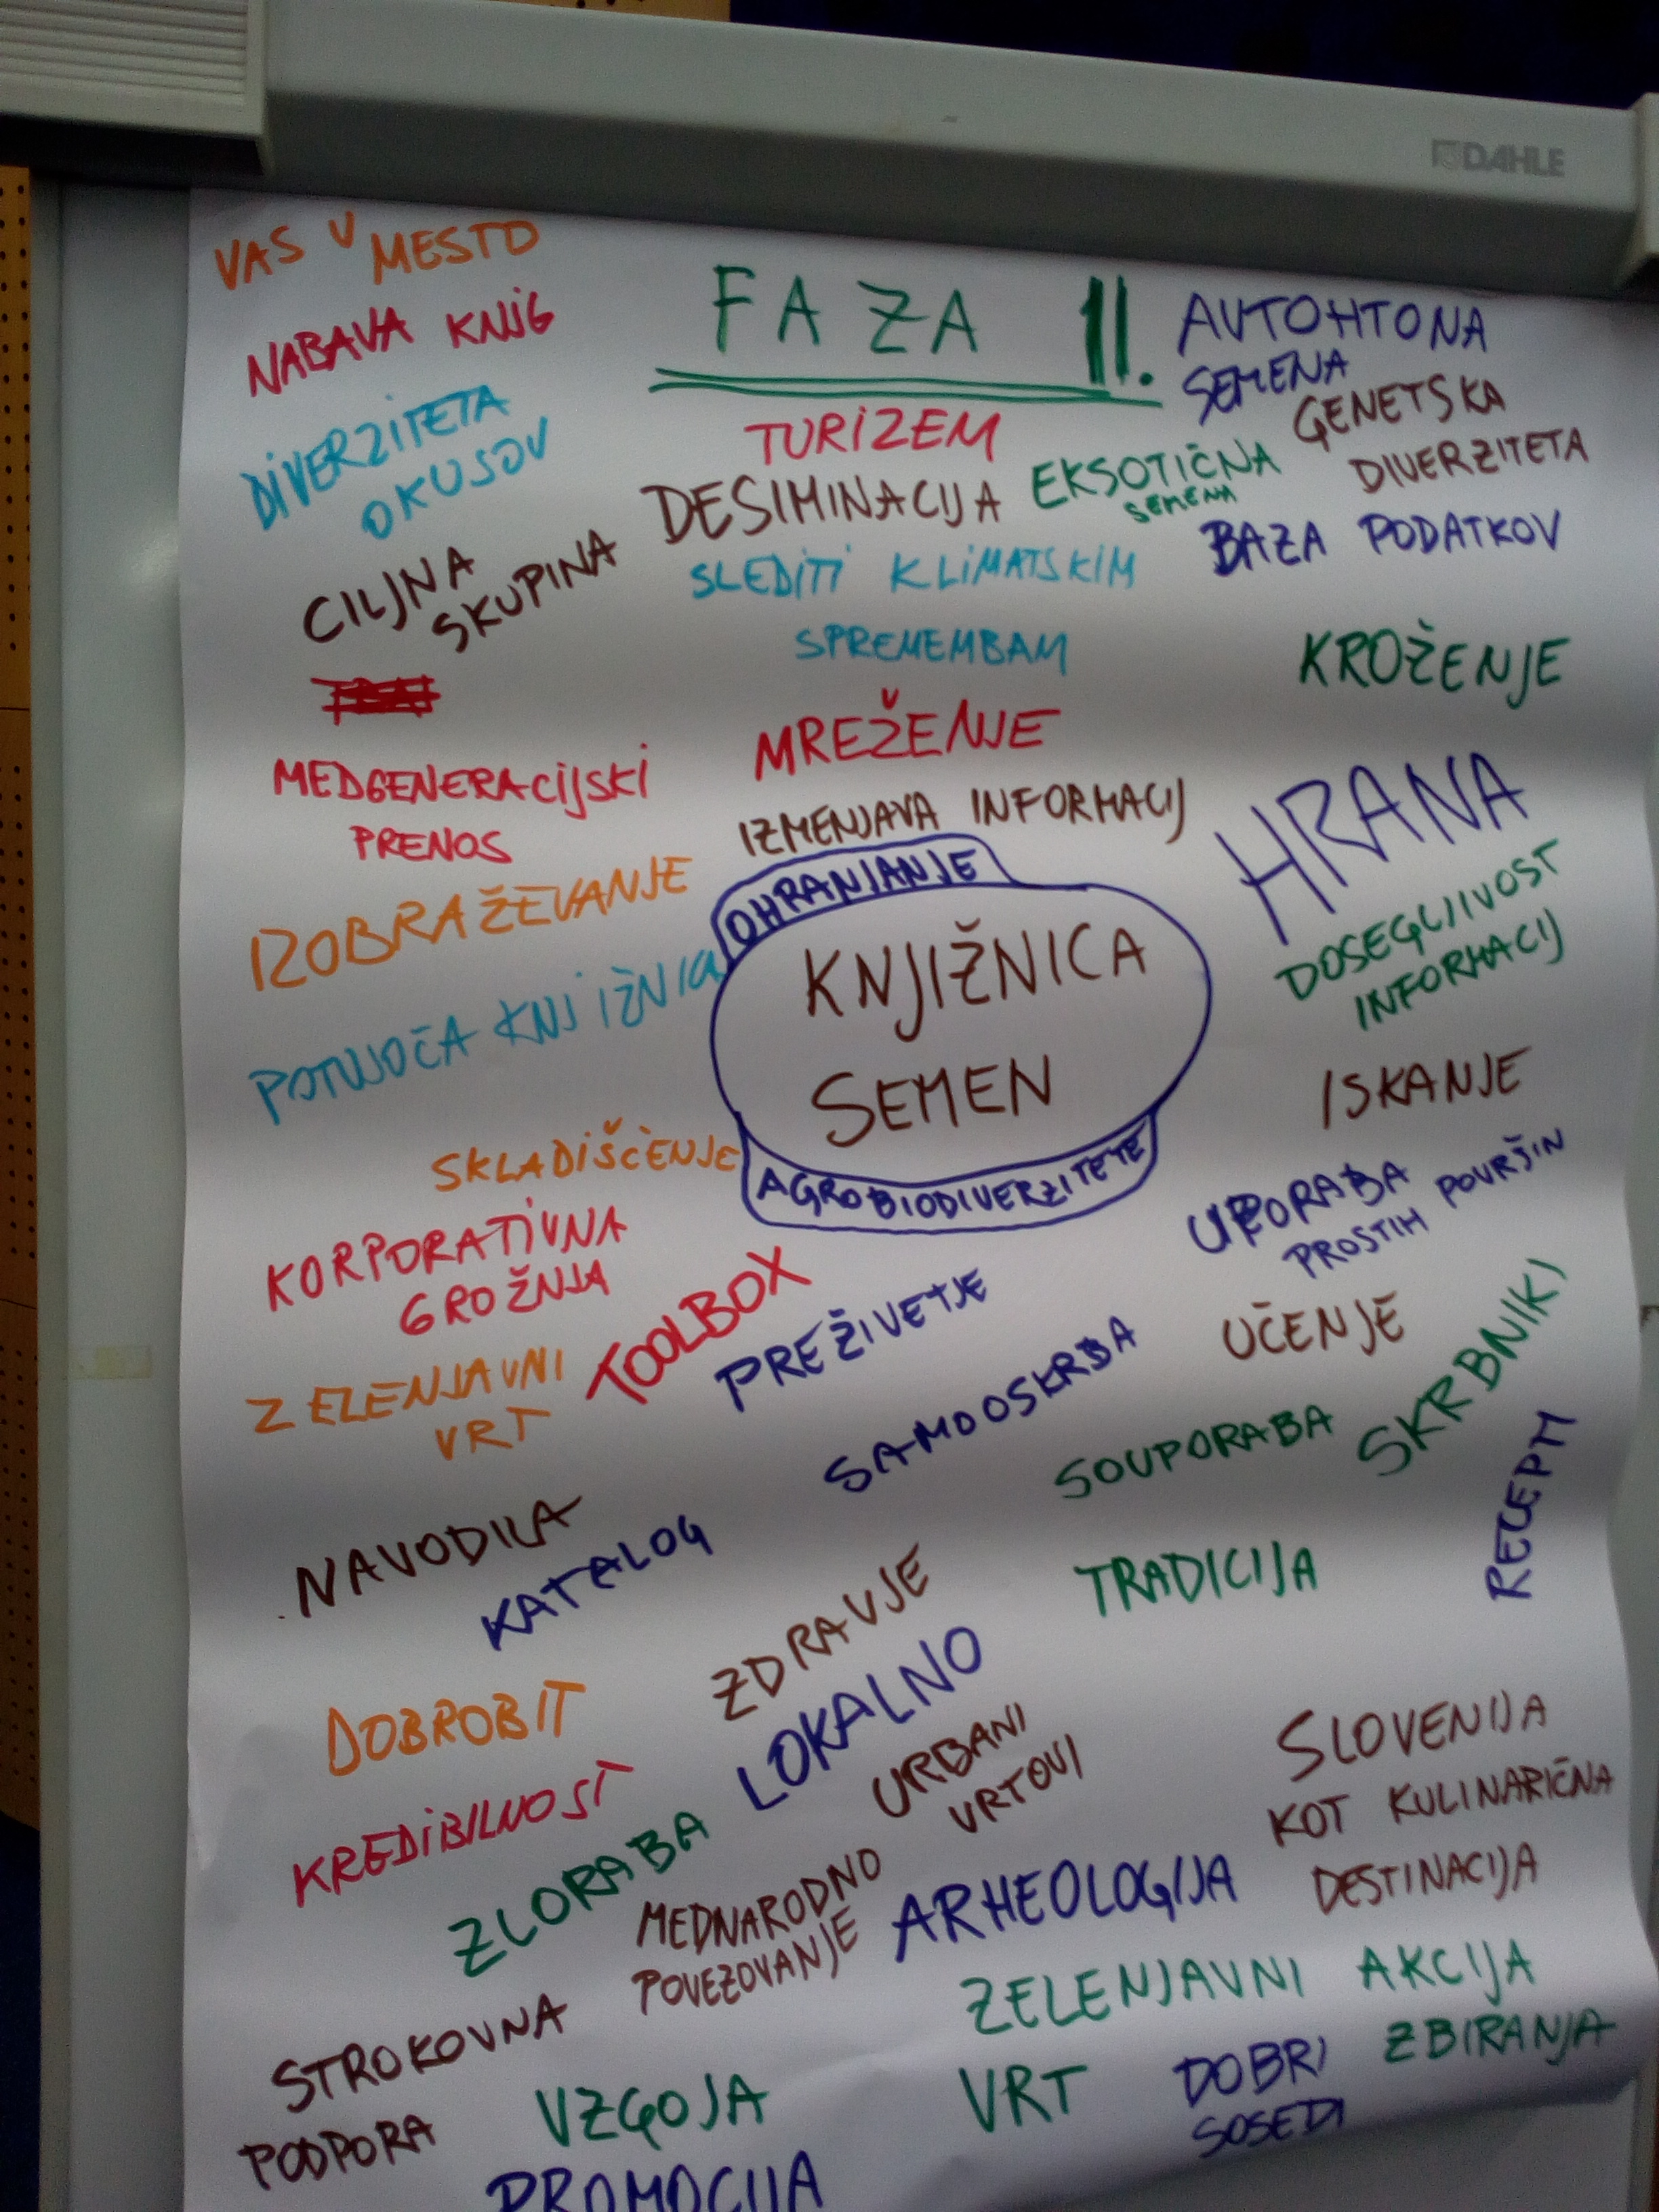 DAHLE
VAS V MESTO
NABAVA KNJIG
DIVERZITETA
OKUSOV
CILJNA
SKUPINA
MEDGENERACIJSKI
PRENOS
IZOBRAŽEVANJE
POTUJOČA KNJIŽNICA
SKLADIŠČENJE
KORPORATIVNA
GROŽNJA
ZELENJAVNI
VRT
FAZA II.
TURIZEM
DESIMINACIJA
SLEDITI KLIMATSKIM
SPREMEMBAM
MREŽENJE
IZMENJAVA INFORMACIJ
OHRANJANJE
KNJIŽNICA
SEMEN
AGROBIODIVERZITETE
AVTOHTONA
SEMENA
GENETSKA
DIVERZITETA
EKSOTIČNA
SEMENA
BAZA PODATKOV
KROŽENJE
HRANA
DOSEGLJIVOST
INFORMACIJ
ISKANJE
UPORABA
PROSTIH POVRŠIN
TOOLBOX
PREŽIVETJE
SAMOOSKRBA
UČENJE
SOUPORABA
SKRBNIKI
RECEPTI
NAVODILA
KATALOG
ZDRAVJE
TRADICIJA
DOBROBIT
LOKALNO
URBANI
VRTOVI
SLOVENIJA
KOT KULINARIČNA
DESTINACIJA
KREDIBILNOST
ZLORABA
MEDNARODNO
POVEZOVANJE
ARHEOLOGIJA
STROKOVNA
PODPORA
VZGOJA
ZELENJAVNI
VRT
AKCIJA
ZBIRANJA
DOBRI
SOSEDI
PROMOCIJA